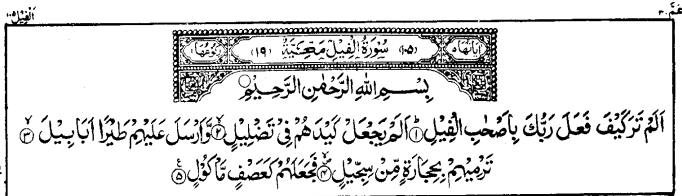 عَمَّ ٣٠ اَلْفِيْل ١٠٥
اٰيَاتُهَا ٥ (١٠٥) سُوْرَةُ الْفِيْلِ مَكِّيَّةٌ (١٩) رُكُوْعُهَا ١
بِسْمِ اللّٰهِ الرَّحْمٰنِ الرَّحِيْمِ
اَلَمْ تَرَ كَيْفَ فَعَلَ رَبُّكَ بِاَصْحٰبِ الْفِيْلِ ﴿١﴾ اَلَمْ يَجْعَلْ كَيْدَهُمْ فِيْ تَضْلِيْلٍ ﴿٢﴾ وَّاَرْسَلَ عَلَيْهِمْ طَيْرًا اَبَابِيْلَ ﴿٣﴾
تَرْمِيْهِمْ بِحِجَارَةٍ مِّنْ سِجِّيْلٍ ﴿٤﴾ فَجَعَلَهُمْ كَعَصْفٍ مَّاْكُوْلٍ ﴿٥﴾